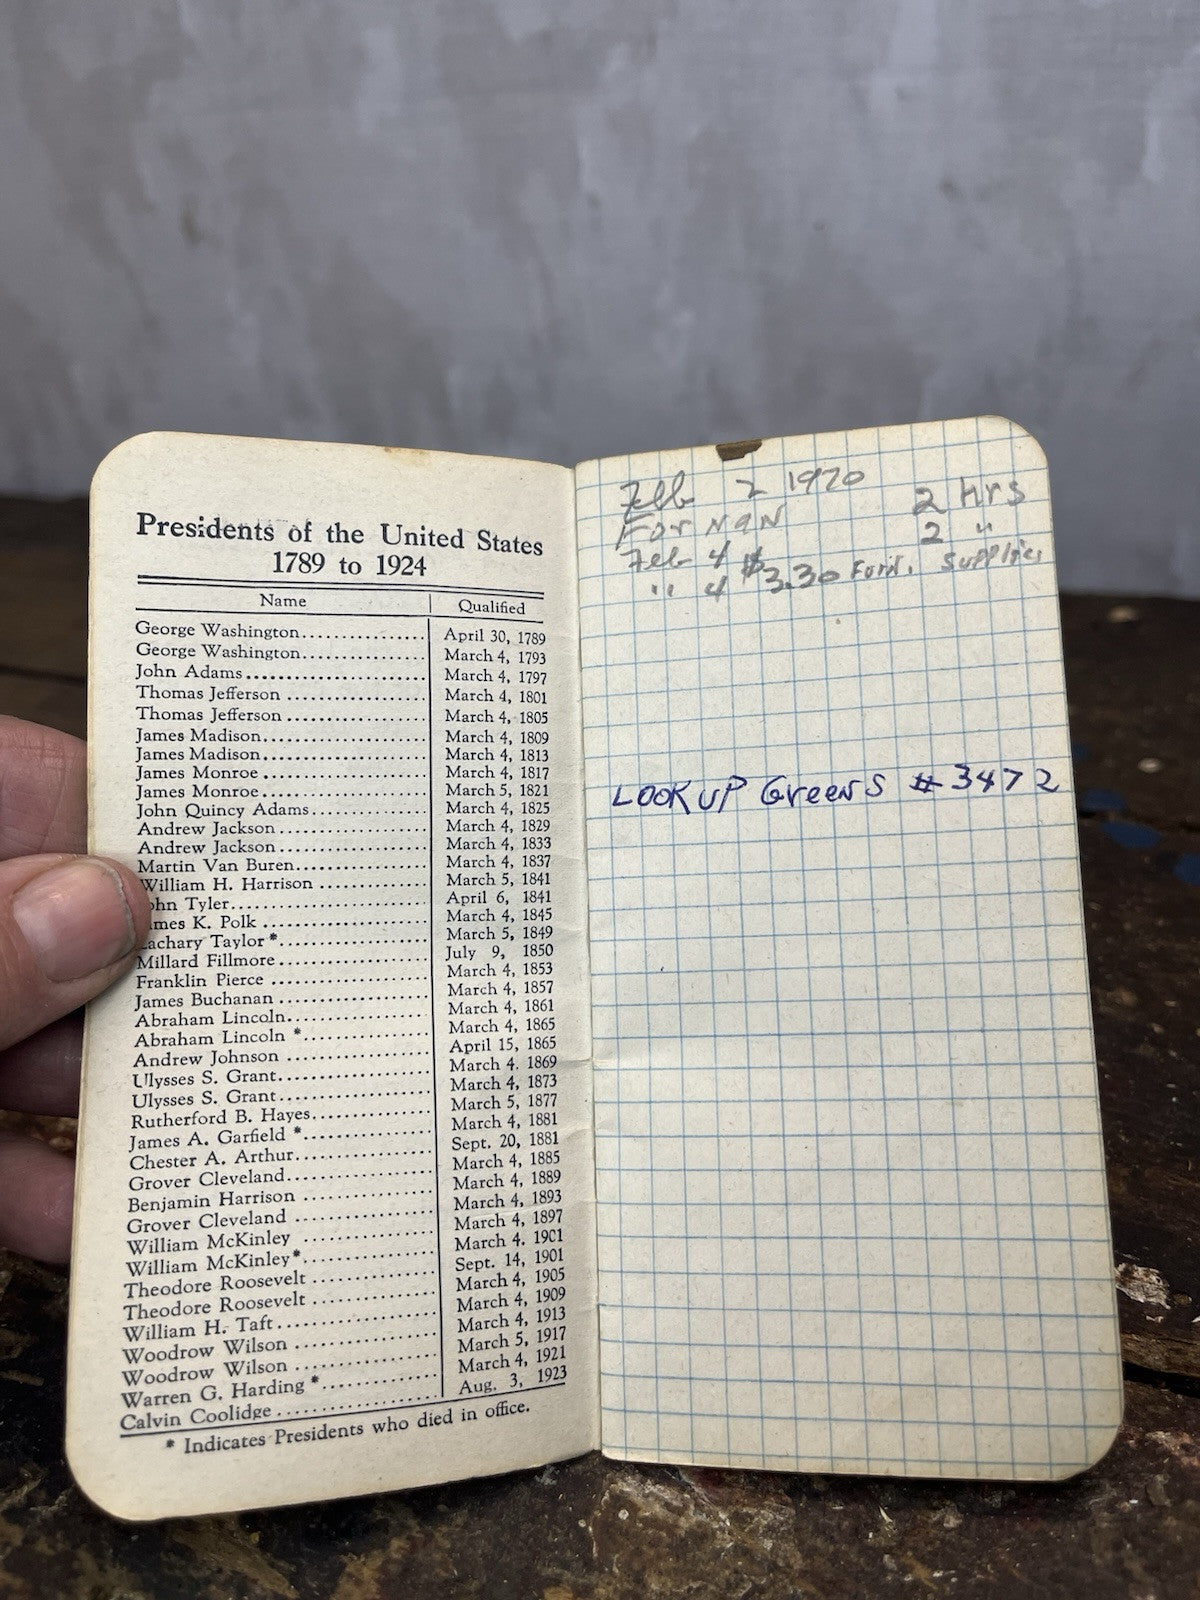 Presidents of the United States
1789 to 1924
Name Qualified
George Washington April 30, 1789
George Washington March 4, 1793
John Adams March 4, 1797
Thomas Jefferson March 4, 1801
Thomas Jefferson March 4, 1805
James Madison March 4, 1809
James Madison March 4, 1813
James Monroe March 4, 1817
James Monroe March 5, 1821
John Quincy Adams March 4, 1825
Andrew Jackson March 4, 1829
Andrew Jackson March 4, 1833
Martin Van Buren March 4, 1837
William H. Harrison March 5, 1841
John Tyler April 6, 1841
James K. Polk March 4, 1845
Zachary Taylor * March 5, 1849
Millard Fillmore July 9, 1850
Franklin Pierce March 4, 1853
James Buchanan March 4, 1857
Abraham Lincoln March 4, 1861
Abraham Lincoln * March 4, 1865
Andrew Johnson April 15, 1865
Ulysses S. Grant March 4. 1869
Ulysses S. Grant March 4, 1873
Rutherford B. Hayes March 5, 1877
James A. Garfield * March 4, 1881
Chester A. Arthur Sept. 20, 1881
Grover Cleveland March 4, 1885
Benjamin Harrison March 4, 1889
Grover Cleveland March 4, 1893
William McKinley March 4, 1897
William McKinley * March 4. 1901
Theodore Roosevelt Sept. 14, 1901
Theodore Roosevelt March 4, 1905
William H. Taft March 4, 1909
Woodrow Wilson March 4, 1913
Woodrow Wilson March 5, 1917
Warren G. Harding * March 4, 1921
Calvin Coolidge Aug. 3, 1923
* Indicates Presidents who died in office.
Feb 2 1970 2 hrs
For NAN 2 "
Feb 4
" 4 $3.30 Furn. Supplies
LOOK UP Greens # 3472